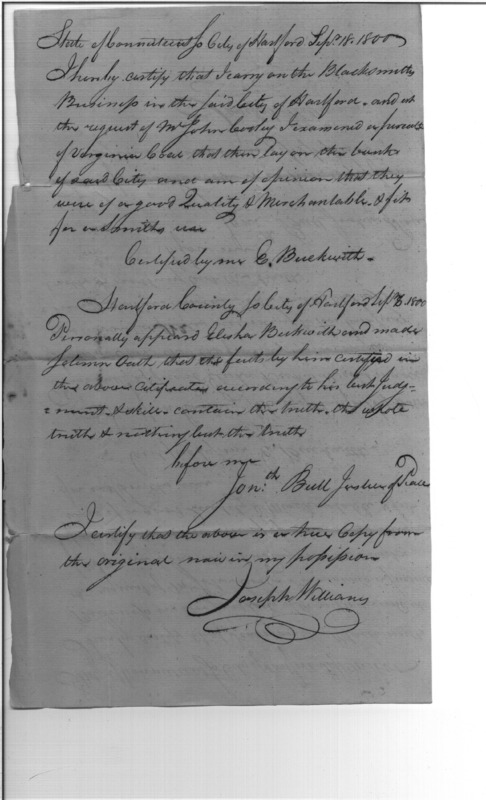 State of Connecticut ss City of Hartford Sepr. 18. 1800
I hereby certify that I carry on the Blacksmiths
Business in the said City of Hartford. and at
the request of Mr John Cooley I examined a parcel
of Virginia Coal that then lay on the bank
of said City and am of opinion that they
were of a good Quality & Merchantable & fit
for a Smiths use
Certified by me E. Beckwith.
Hartford County ss City of Hartford Sepr 1800
Personally appeard Elisha Beckwith and made
Solemn Oath, that the facts by him certified in
the above Certificate according to his best Judg-
=ment & skill contain the truth. the whole
truth & nothing but the truth
before me
Jonth. Bull Justice of Peace
I certify that the above is a true Copy from
the original now in my possession
Joseph Williams